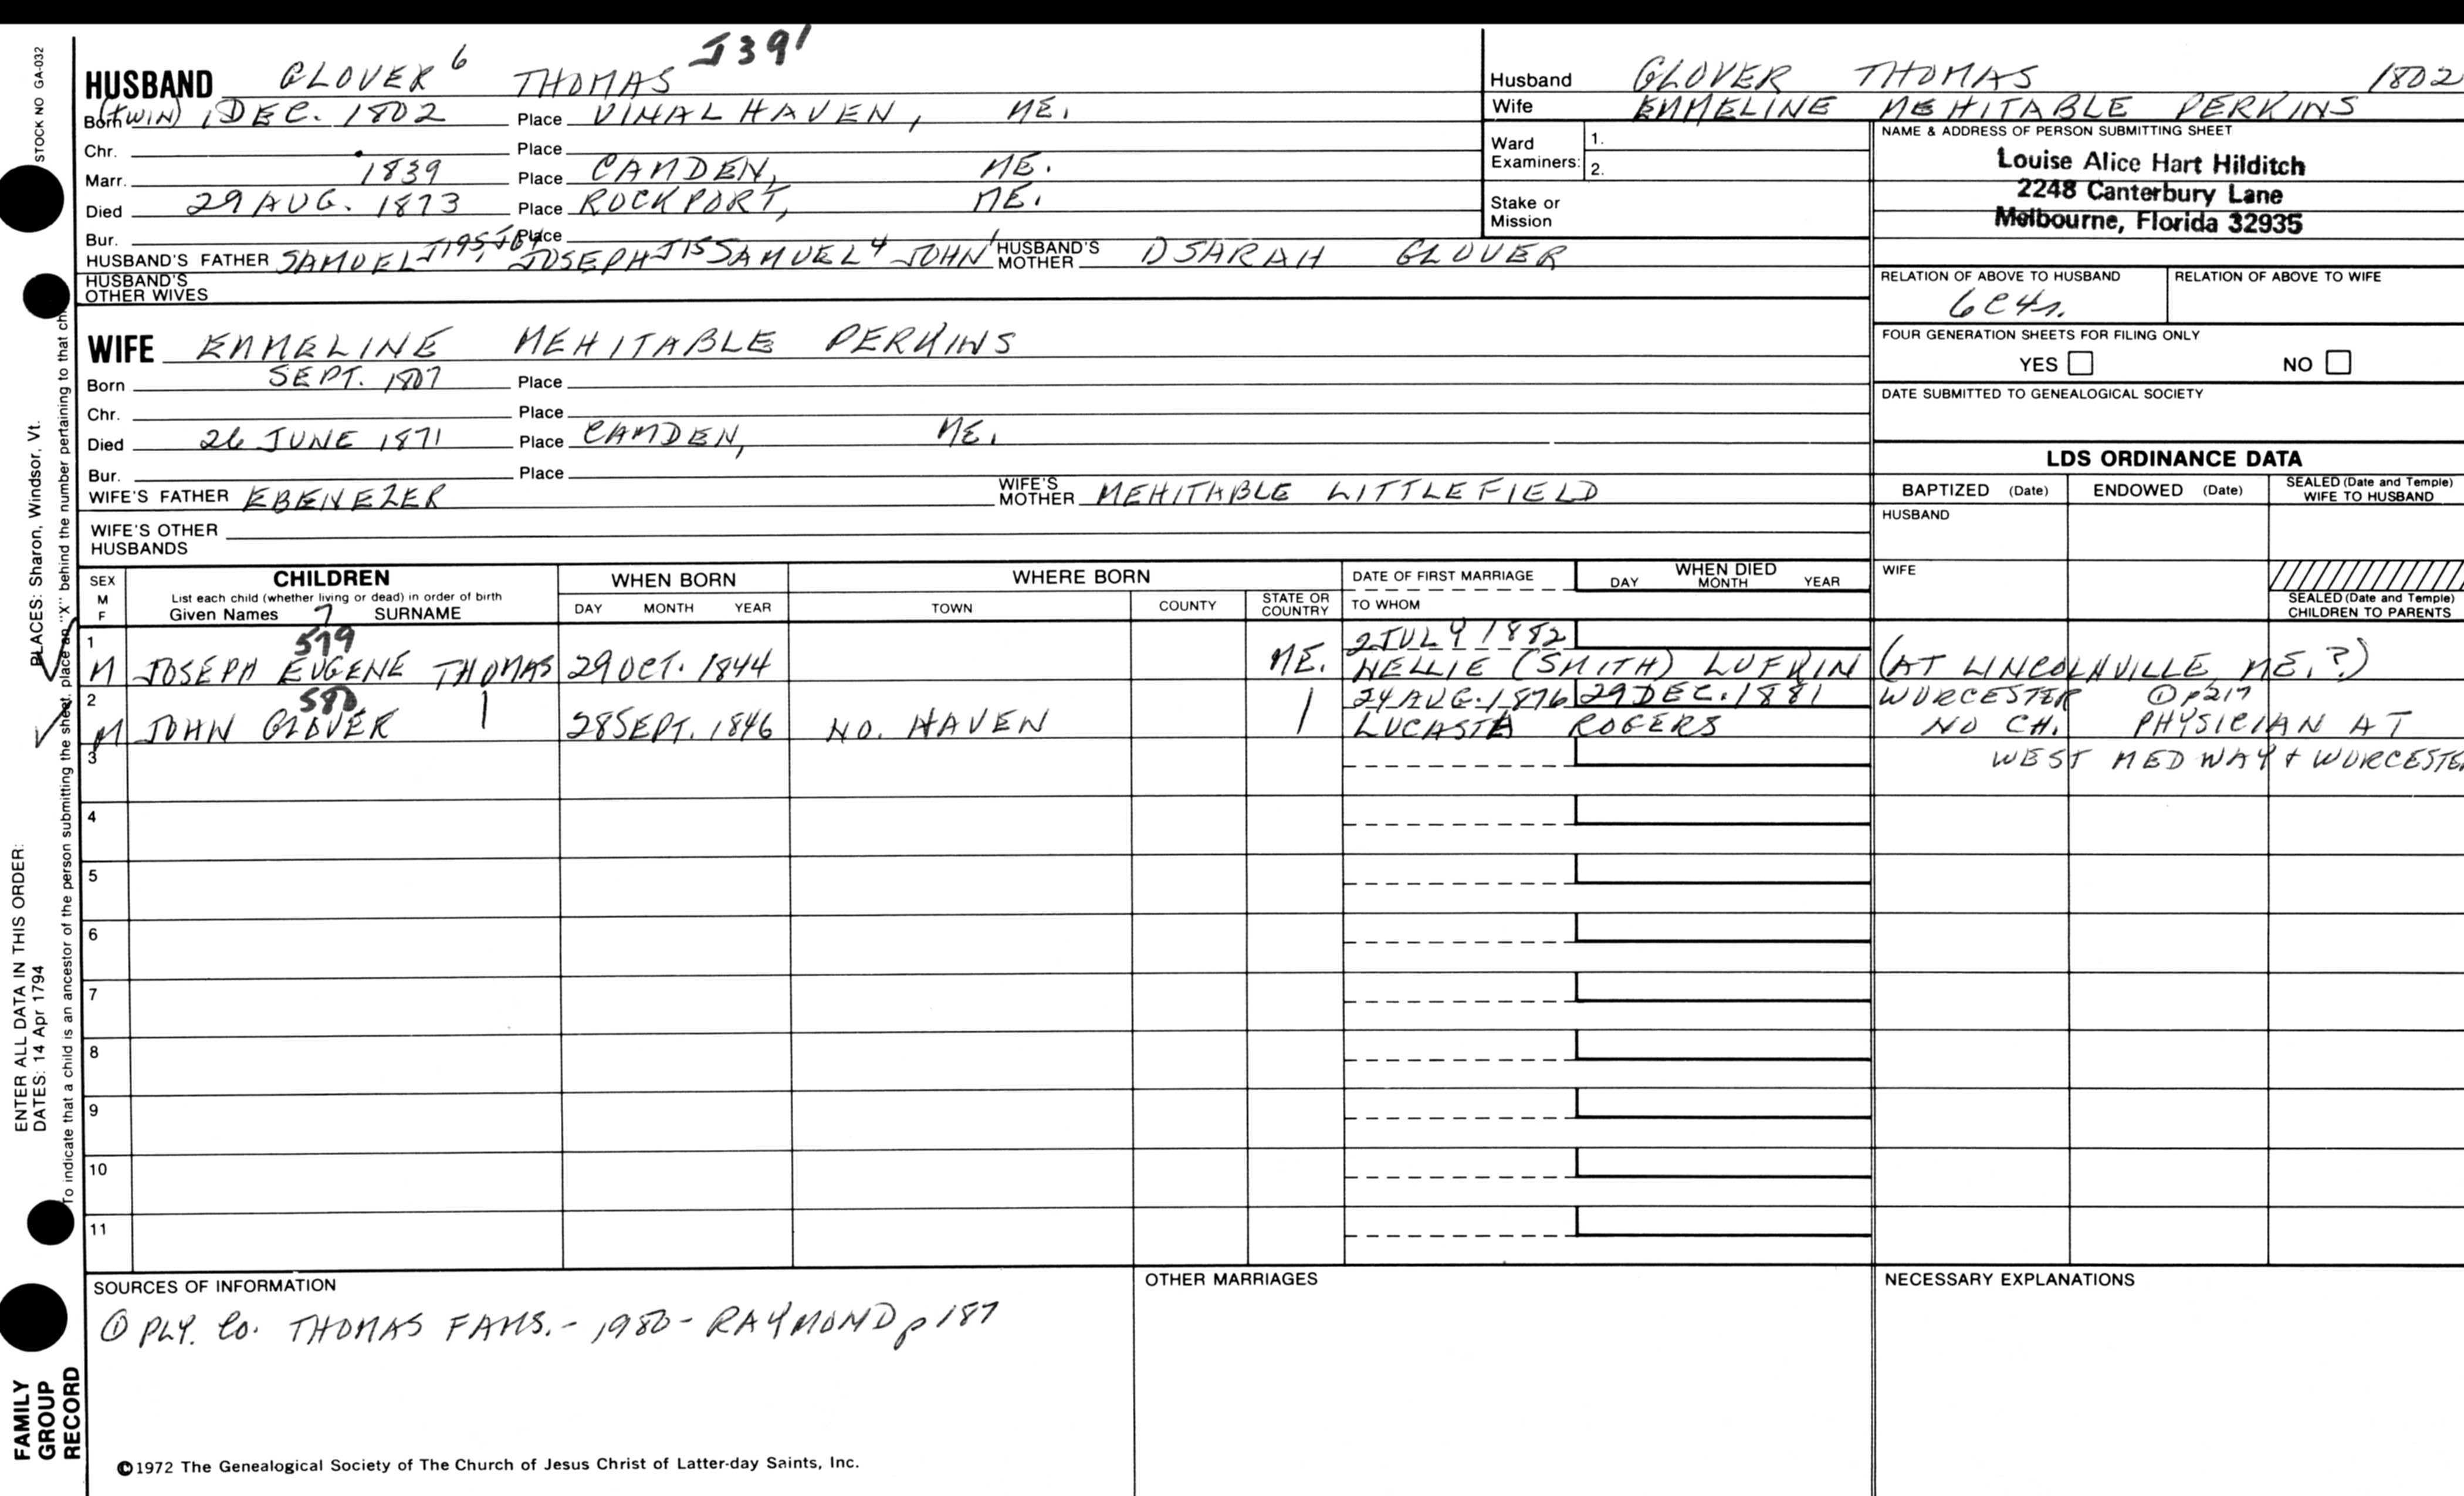 STOCK NO GA-032
J391
HUSBAND GLOVER 6 THOMAS
Husband GLOVER THOMAS 1802
Wife EMMELINE MEHITABLE PERKINS
Born (TWIN) 1 DEC. 1802 Place VINALHAVEN, ME.
Chr. Place
Marr. 1839 Place CAMDEN, ME.
Died 29 AUG. 1873 Place ROCKPORT, ME.
Bur. Place
HUSBAND'S FATHER SAMUEL J195, JOSEPH J15 SAMUEL 4 JOHN HUSBAND'S MOTHER DSARAH GLOVER
HUSBAND'S OTHER WIVES
Ward Examiners: 1.
2.
Stake or Mission
NAME & ADDRESS OF PERSON SUBMITTING SHEET
Louise Alice Hart Hilditch
2248 Canterbury Lane
Melbourne, Florida 32935
RELATION OF ABOVE TO HUSBAND RELATION OF ABOVE TO WIFE
6C4r.
FOUR GENERATION SHEETS FOR FILING ONLY
YES NO
DATE SUBMITTED TO GENEALOGICAL SOCIETY
WIFE EMMELINE MEHITABLE PERKINS
Born SEPT. 1807 Place
Chr. Place
Died 26 JUNE 1871 Place CAMDEN, ME.
Bur. Place
WIFE'S FATHER EBENEZER WIFE'S MOTHER MEHITABLE LITTLEFIELD
WIFE'S OTHER HUSBANDS
LDS ORDINANCE DATA
BAPTIZED (Date) ENDOWED (Date) SEALED (Date and Temple) WIFE TO HUSBAND
HUSBAND
WIFE
SEALED (Date and Temple) CHILDREN TO PARENTS
SEX M F
CHILDREN
List each child (whether living or dead) in order of birth
Given Names 7 SURNAME
WHEN BORN
DAY MONTH YEAR
WHERE BORN
TOWN COUNTY STATE OR COUNTRY
DATE OF FIRST MARRIAGE
TO WHOM
WHEN DIED
DAY MONTH YEAR
1 579 2 JULY 1882
M JOSEPH EUGENE THOMAS 29 OCT. 1844 ME. NELLIE (SMITH) LUFKIN (AT LINCOLNVILLE, ME.?)
2 580 24 AUG. 1876 29 DEC. 1881 WORCESTER ① p217
M JOHN GLOVER | 28 SEPT. 1846 NO. HAVEN | LUCASTA ROGERS NO CH. PHYSICIAN AT
3 WEST MEDWAY + WORCESTER
4
5
6
7
8
9
10
11
SOURCES OF INFORMATION
① PLY. Co. THOMAS FAMS. - 1980 - RAYMOND p 187
OTHER MARRIAGES
NECESSARY EXPLANATIONS
©1972 The Genealogical Society of The Church of Jesus Christ of Latter-day Saints, Inc.
PLACES: Sharon, Windsor, Vt.
To indicate that a child is an ancestor of the person submitting the sheet, place an "X" behind the number pertaining to that
ENTER ALL DATA IN THIS ORDER:
DATES: 14 Apr 1794
FAMILY
GROUP
RECORD